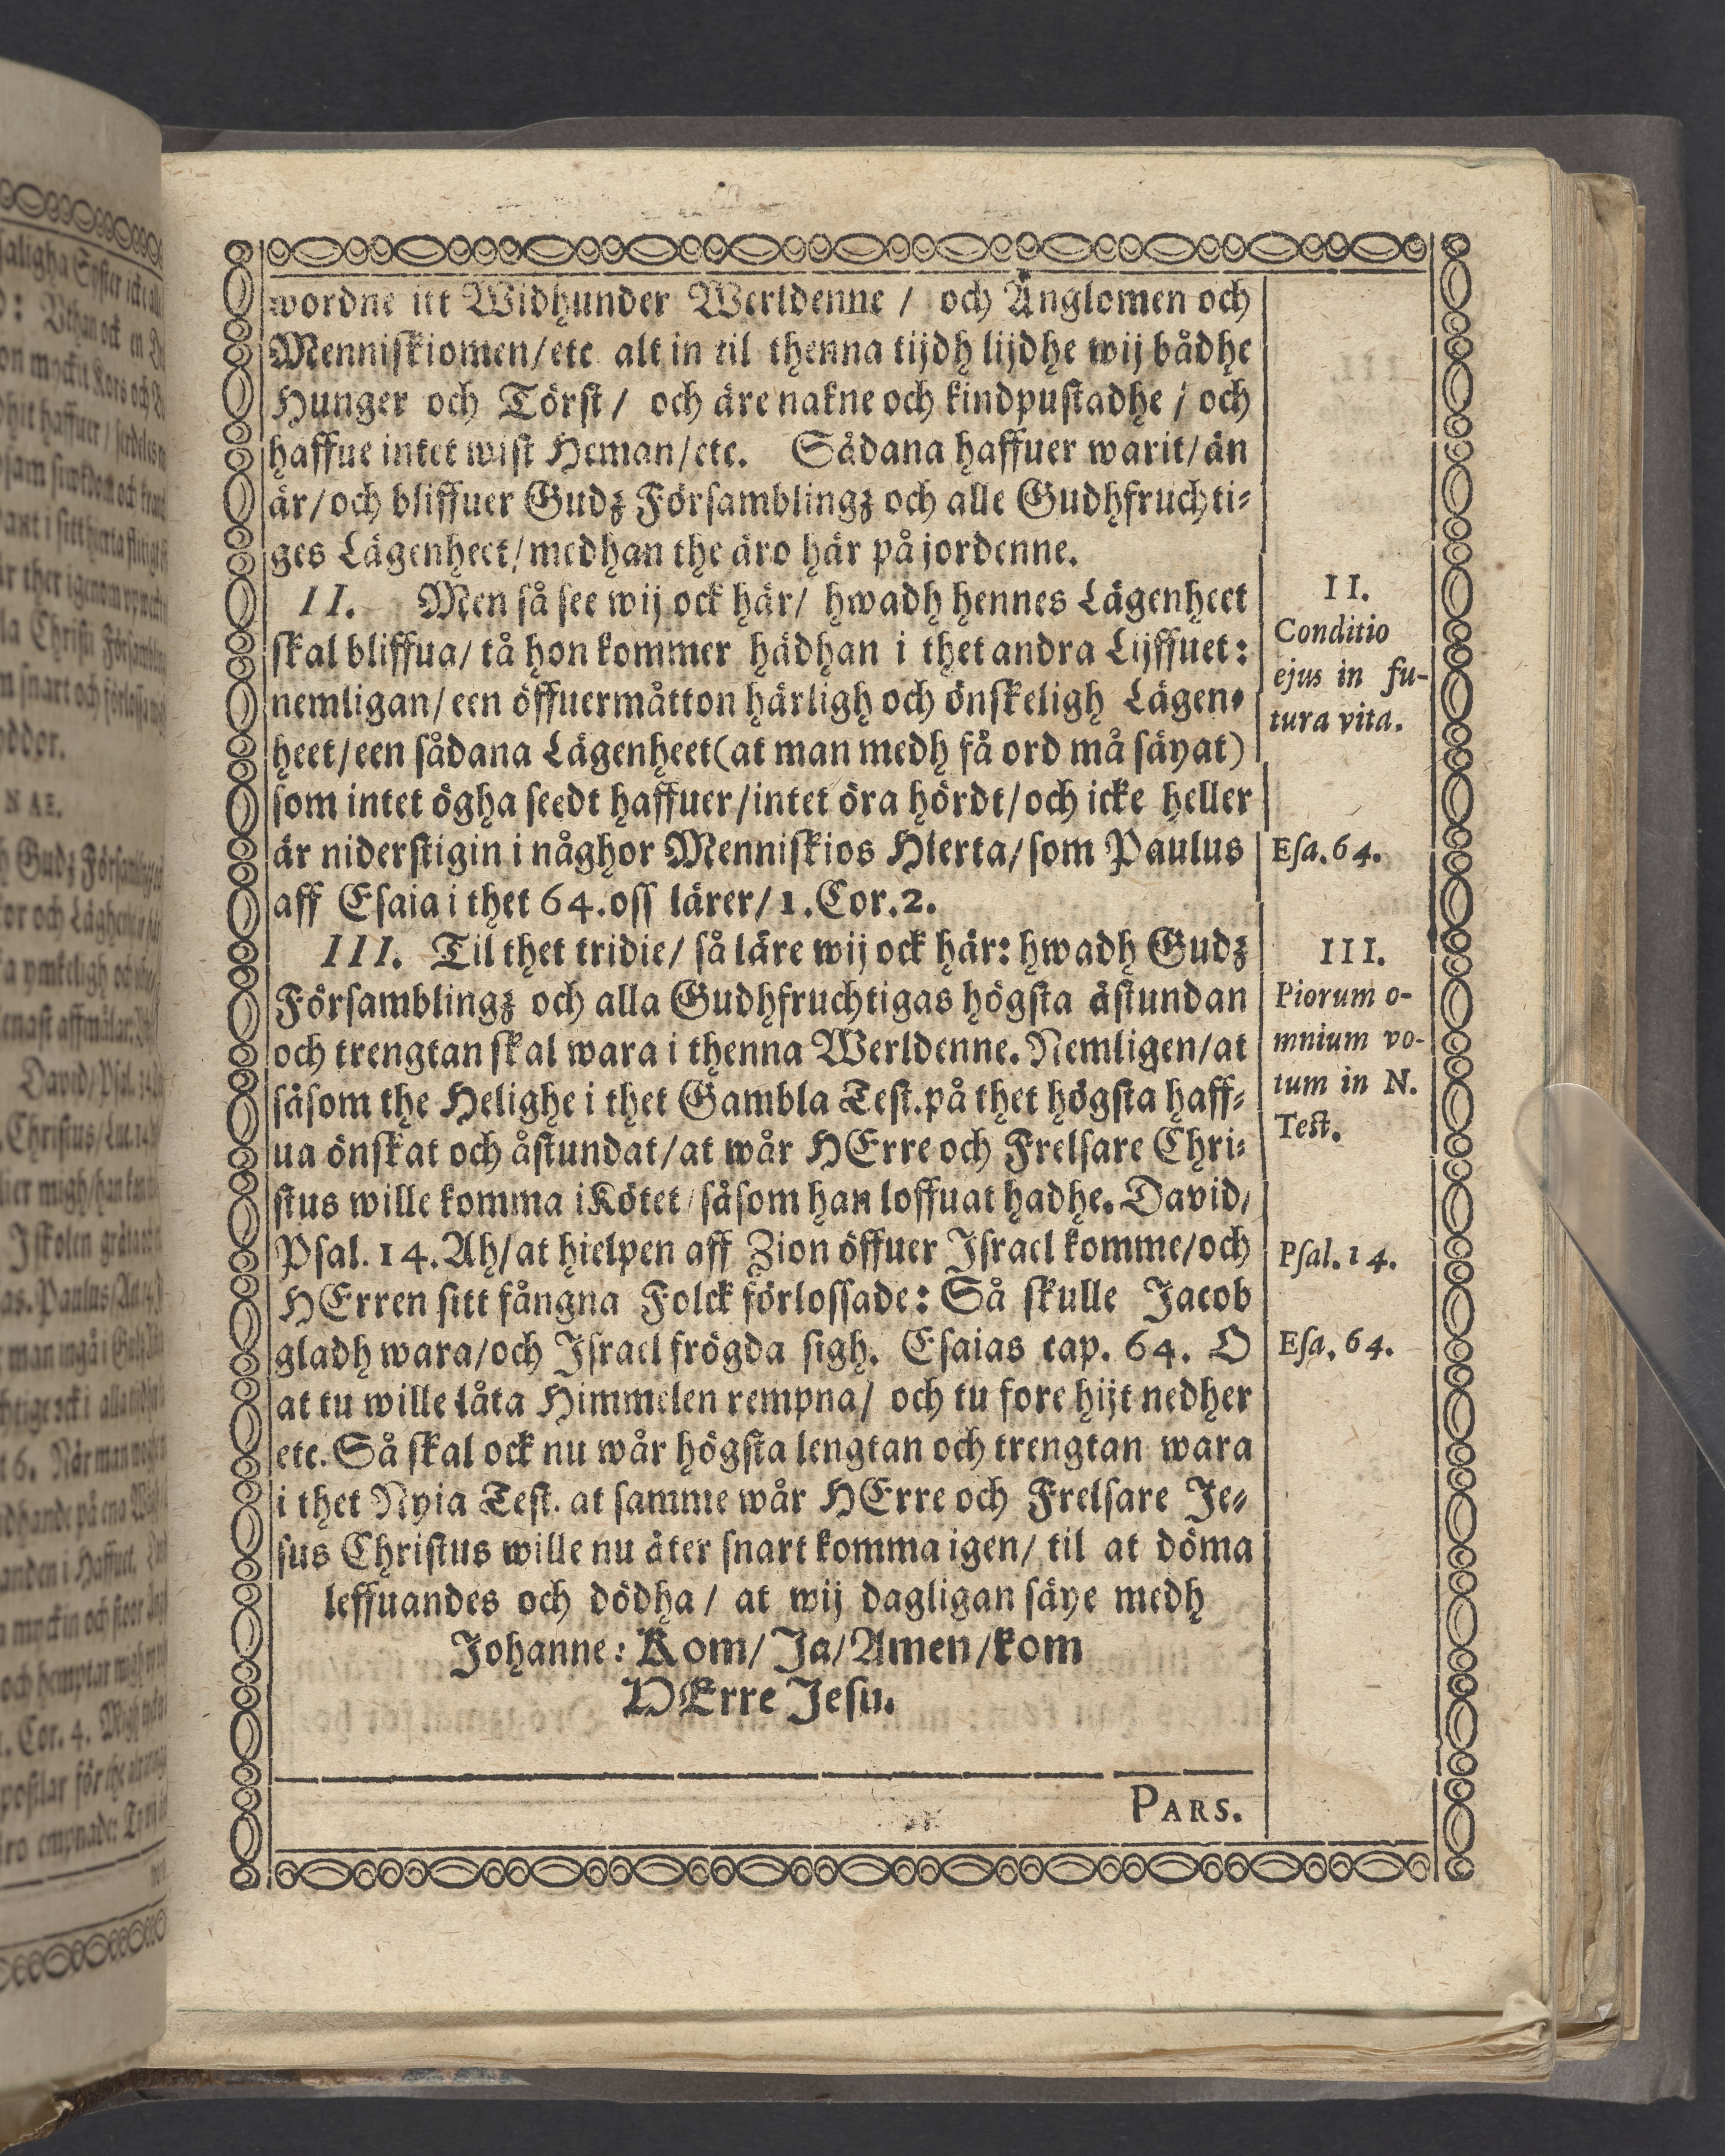 wordne itt Widhunder Werldenne / och Änglomen och
Menniſkiomen/etc alt in til thenna tijdh lijdhe wij bådhe
Hunger och Törſt / och äre nakne och kindpuſtadhe / och
haffue intet wiſt Heman/etc. Sådana haffuer warit/än
är/och bliffuer Gudz Förſamblingz och alle Gudhfruchti-
ges Lägenheet/medhan the äro här på jordenne.
II. Men så ſee wij ock här/ hwadh hennes Lägenheet
ſkal bliffua/ tå hon kommer hädhan i thet andra Lijffuet:
nemligan/een öffuermåtton härligh och önſkeligh Lägen-
heet/een ſådana Lägenheet(at man medh få ord må ſäyat)
ſom intet ögha ſeedt haffuer/intet öra hördt/och icke heller
är niderſtigin i någhor Menniſkios Hierta/ſom Paulus
aff Eſaia i thet 64.oſſ lärer/1.Cor.2.
III. Til thet tridie/ ſå läre wij ock här: hwadh Gudz
Förſamblingz och alla Gudhfruchtigas högſta åſtundan
och trengtan ſkal wara i thenna Werldenne. Nemligen/at
ſåſom the Helighe i thet Gambla Teſt.på thet högſta haff-
ua önſkat och åſtundat/at wår HErre och Frelſare Chri-
ſtus wille komma i Kötet/ſåſom han loffuat hadhe. David/
Pſal. 14. Ah/at hielpen aff Zion öffuer Iſrael komme/och
HErren ſitt fångna Folck förloſſade: Så ſkulle Jacob
gladh wara/och Iſrael frögda ſigh. Eſaias cap. 64. O
at tu wille låta Himmelen rempna/ och tu fore hijt nedher
etc. Så ſkal ock nu wår högſta lengtan och trengtan wara
i thet Nyia Teſt. at ſamme wår HErre och Frelſare Je-
ſus Chriſtus wille nu åter ſnart komma igen/ til at döma
leffuandes och dödha / at wij dagligan ſäye medh
Johanne: Kom/ Ja/Amen/kom
HErre Jeſu.
PARS.
II.
Conditio
ejus in fu-
tura vita.
Eſa. 64.
III.
Piorum o-
mnium vo-
tum in N.
Teſt.
Pſal. 14.
Eſa. 64.